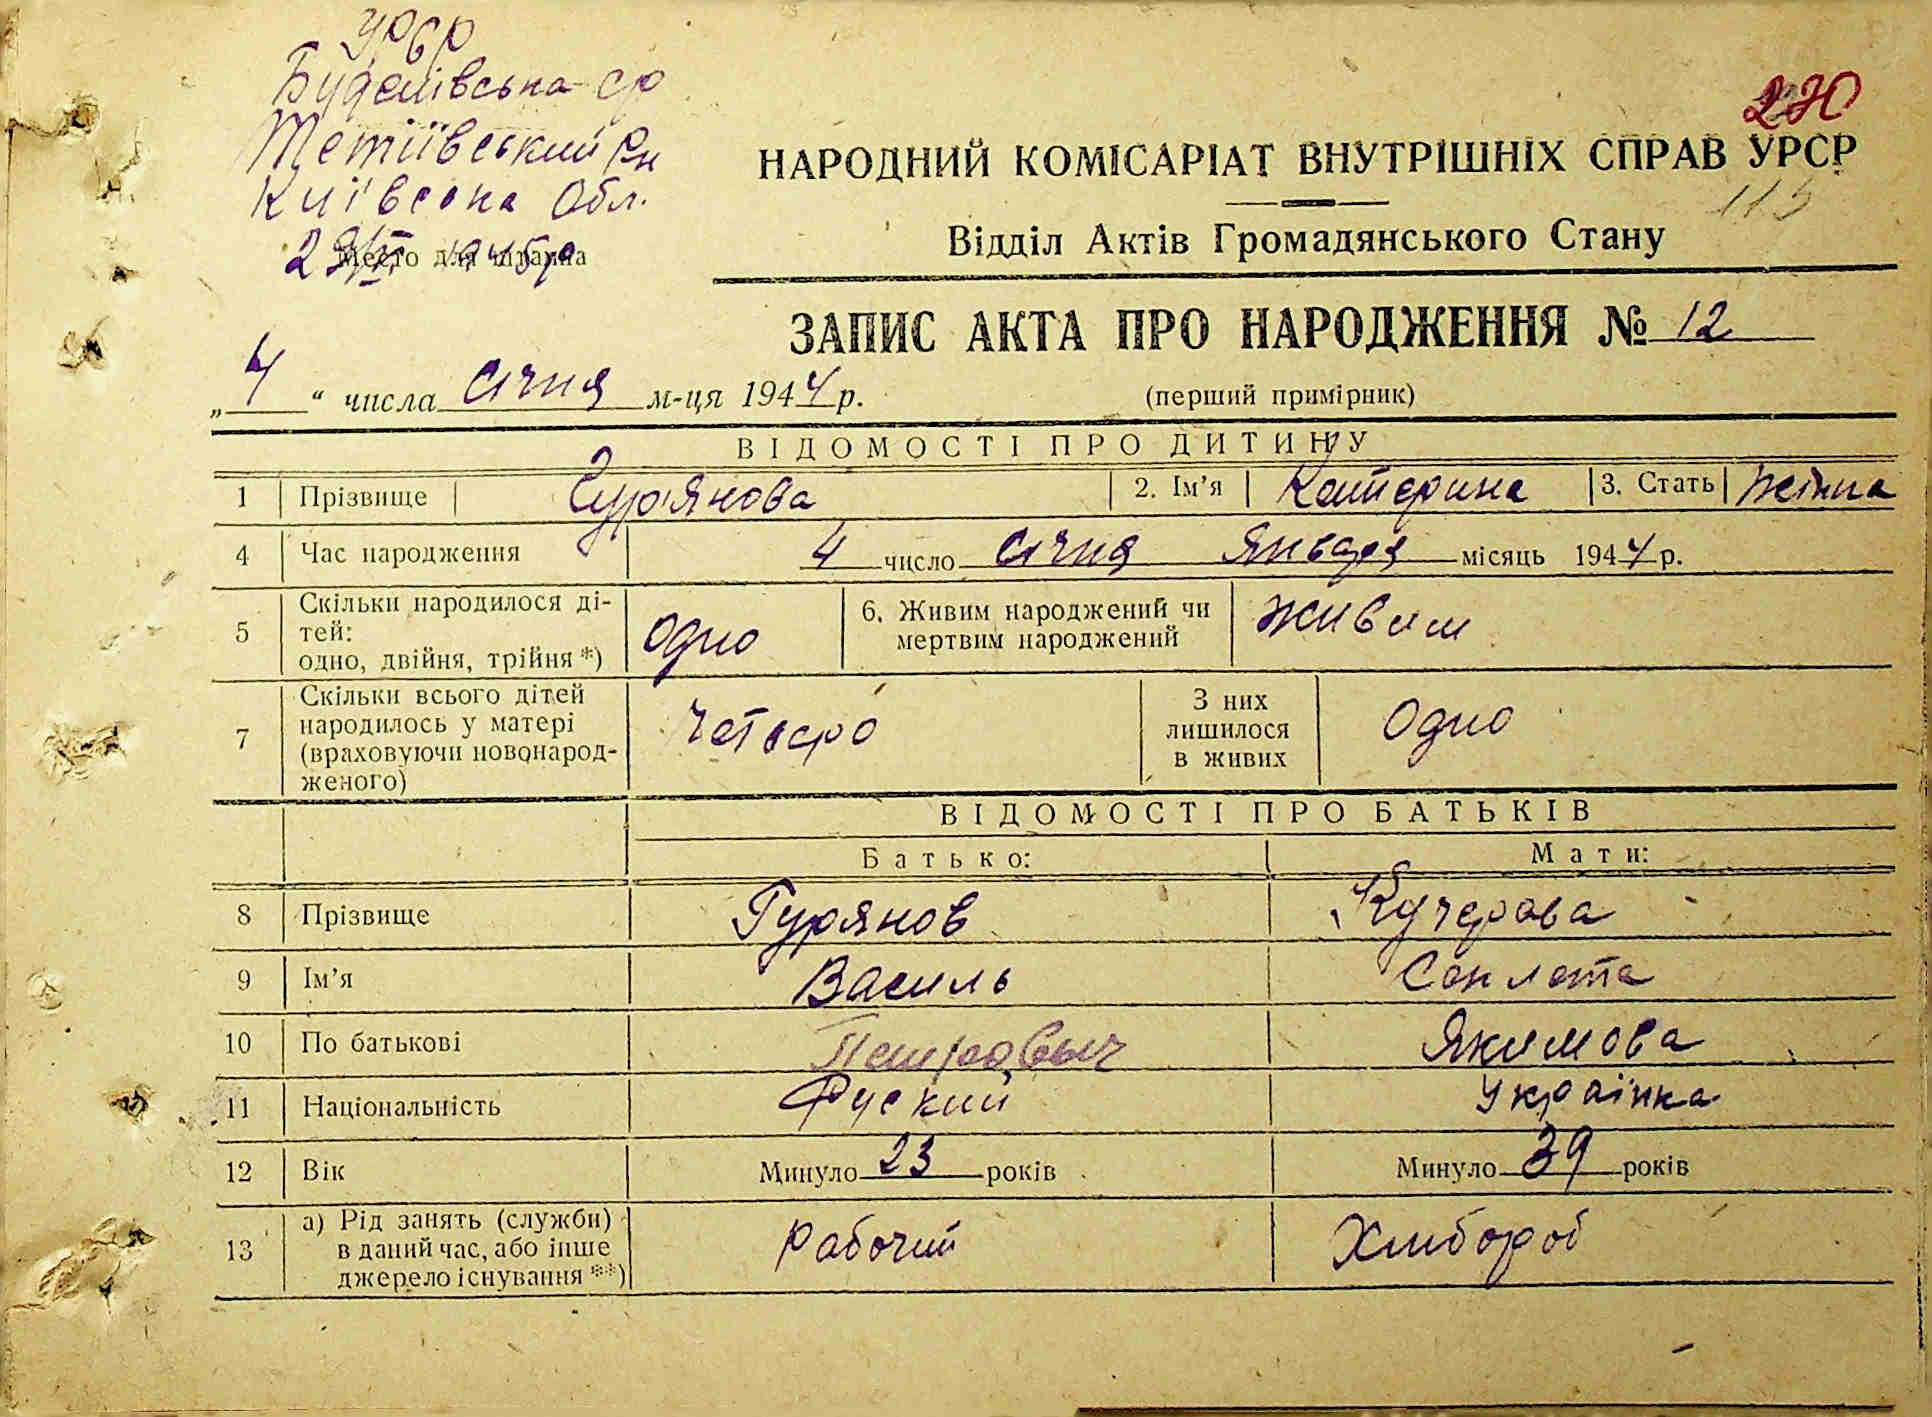 УРСР
ср
Тетіївський Рн
Київсока Обл.
Место для штампа
270
НАРОДНИЙ КОМІСАРІАТ ВНУТРІШНІХ СПРАВ УРСР
115
Відділ Актів Громадянського Стану
ЗАПИС АКТА ПРО НАРОДЖЕННЯ № 12
„ 4 “ числа січня м-ця 1944 р.
(перший примірник)
ВІДОМОСТІ ПРО ДИТИНУ
1 Прізвище Гур'янова 2. Ім’я Катерина 3. Стать Жінка
4 Час народження 4 число січня Января місяць 1944 р.
5 Скільки народилося ді-
тей:
одно, двійня, трійня *) Одно 6. Живим народжений чи
мертвим народжений Живим
7 Скільки всього дітей
народилось у матері
(враховуючи новонарод-
женого) Четверо З них
лишилося
в живих Одно
ВІДОМОСТІ ПРО БАТЬКІВ
Батько: Мати:
8 Прізвище Гурянов Кучерова
9 Ім’я Василь
10 По батькові Петровыч Якимова
11 Національність Руский Українка
12 Вік Минуло 23 років Минуло 39 років
13 а) Рід занять (служби)
в даний час, або інше
джерело існування **) Рабочий Хлибороб